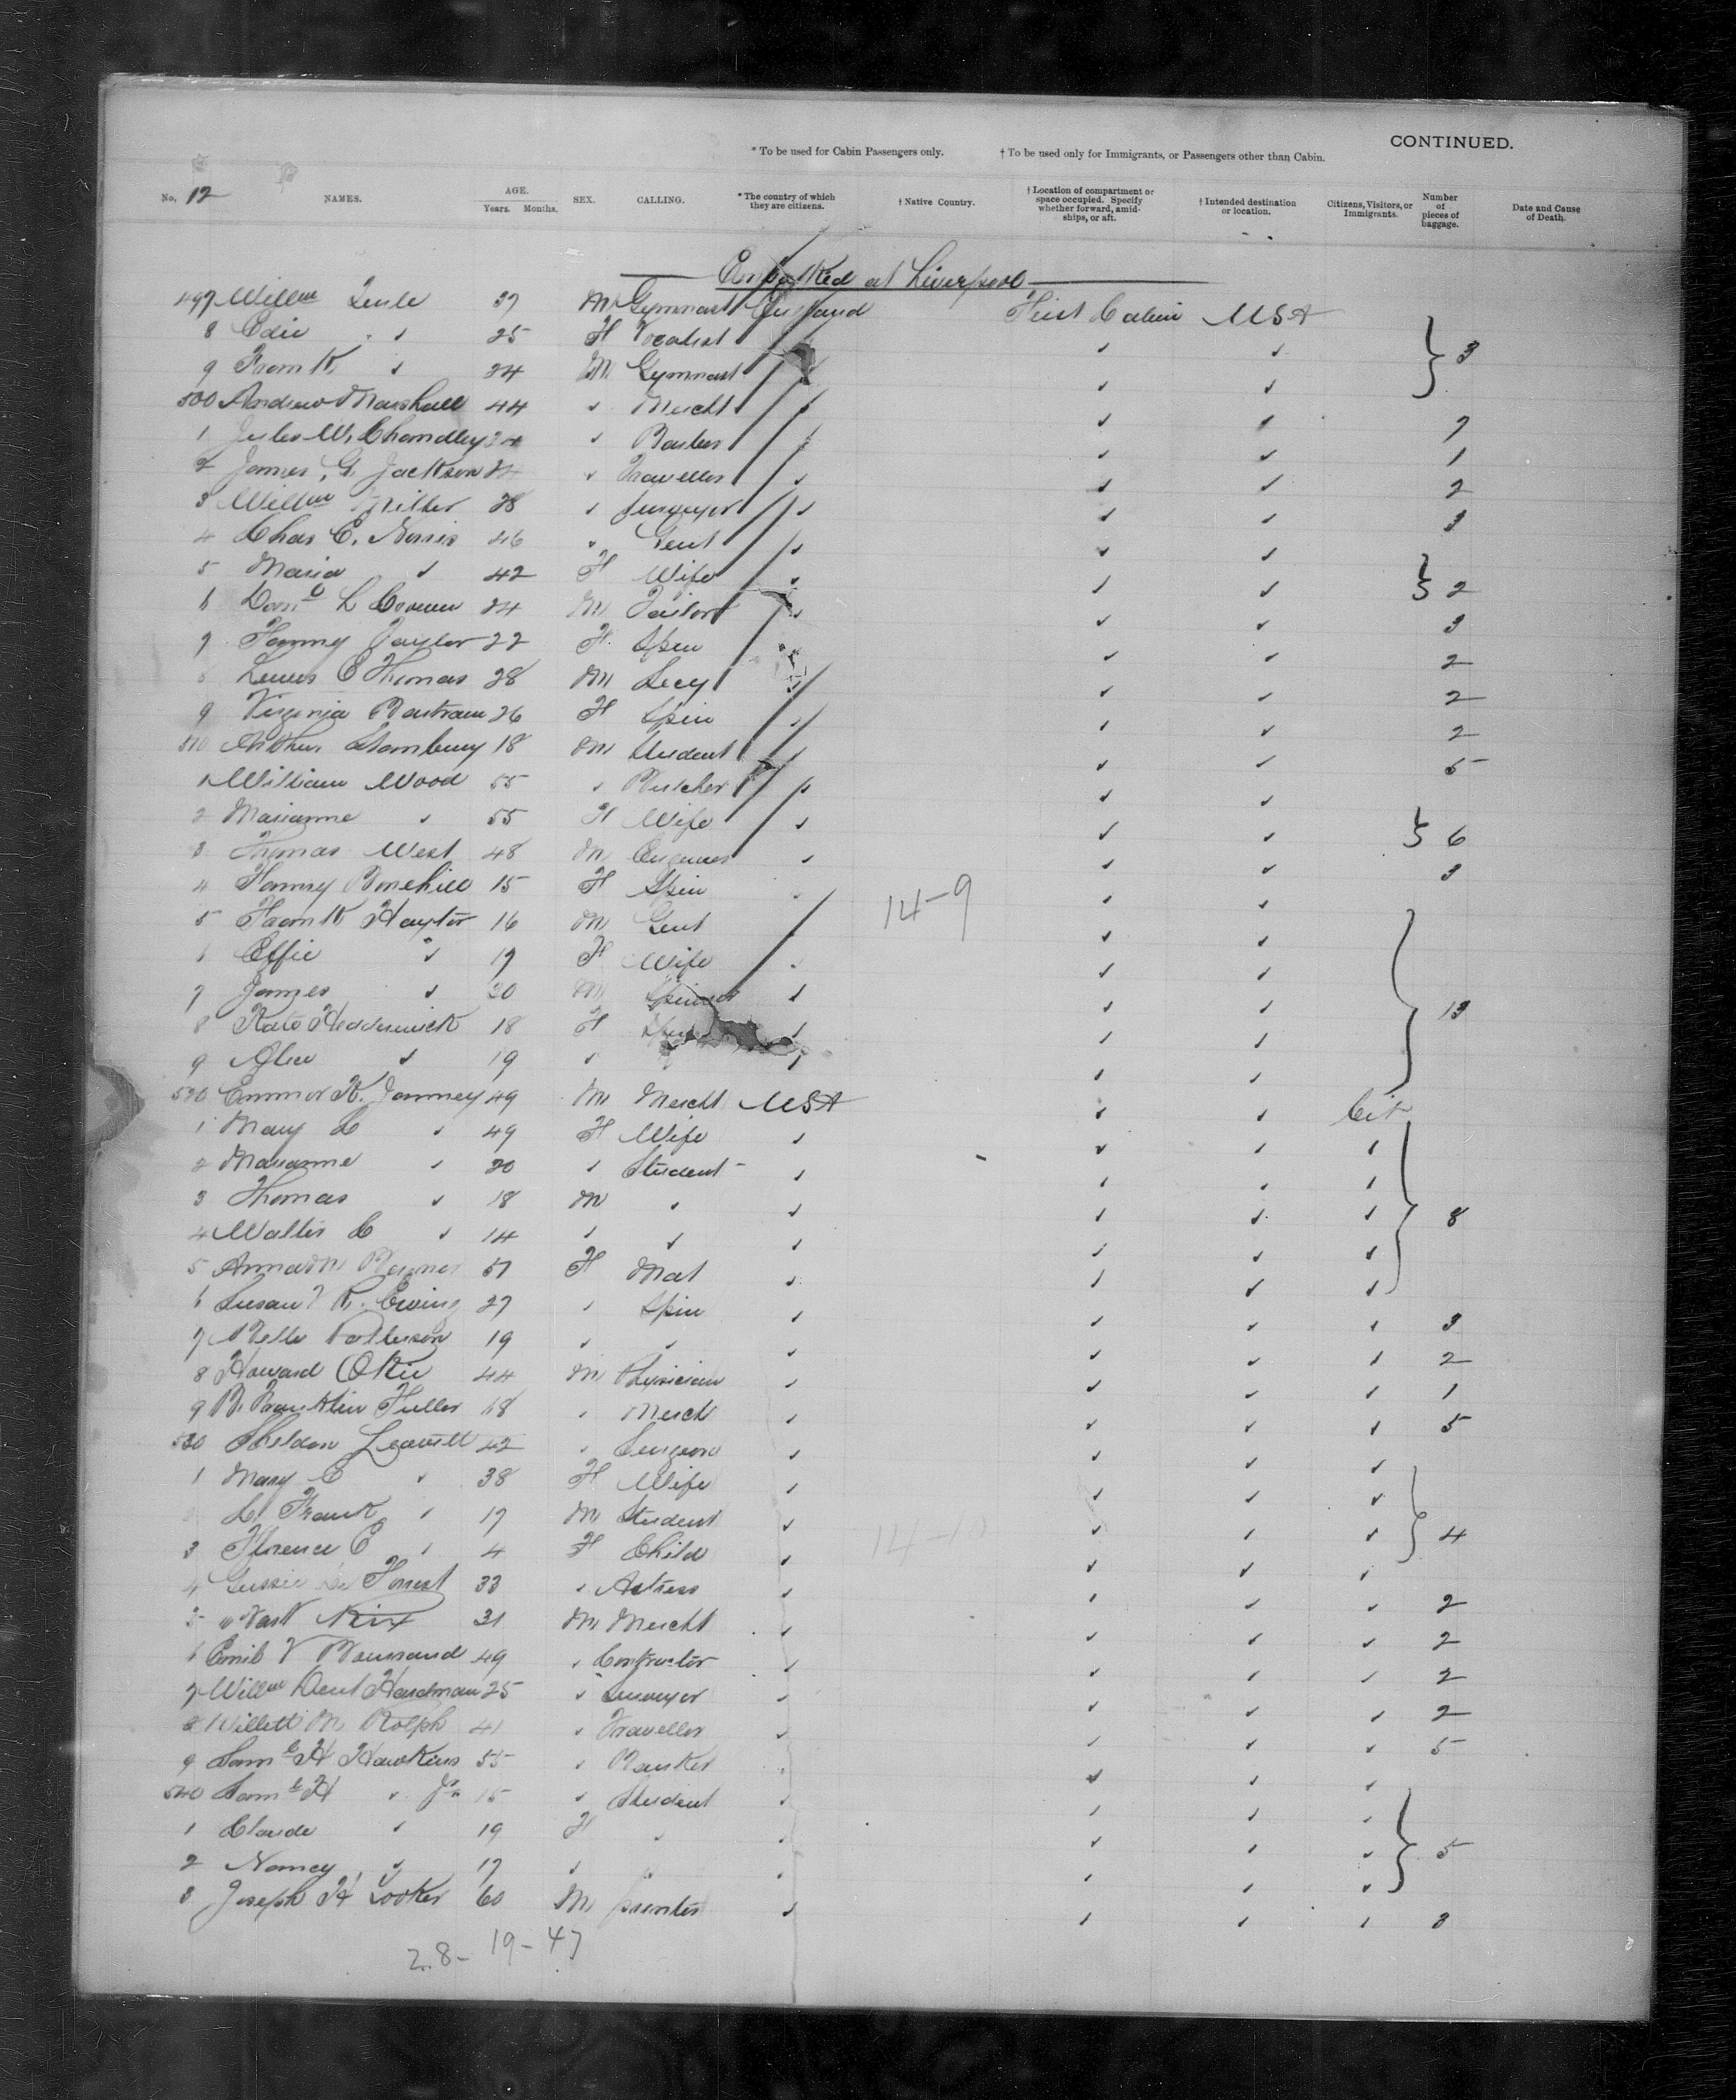 CONTINUED.
* To be used for Cabin Passengers only. † To be used only for Immigrants, or Passengers other than Cabin.
No. 12 NAMES. AGE. Years. Months. SEX. CALLING. * The country of which they are citizens. † Native Country. † Location of compartment or space occupied. Specify whether forward, amidships, or aft. † Intended destination or location. Citizens, Visitors, or Immigrants. Number of pieces of baggage. Date and Cause of Death.
Embarked at Liverpool
497 Willm 37 M Gymnast England First Cabin USA
8 Edie " 25 F Vocalist " " 3
9 Frank " 24 M Gymnast " "
500 Andrew Marshall 44 " Mercht " " " 7
1 Jules W. Chandley 34 " " " " 1
2 James G. Jackson " Traveller " " " 2
3 Willm Miller 28 " Surveyor " " " 3
4 Chas E. Norris 46 " Gent " " "
5 Maria " 42 F Wife " " " 2
6 L 24 M Tailor " " " 3
7 Fanny Taylor 22 F Spin " " 2
8 Lewis E Thomas 28 M Secy " " " 2
9 Virginia Bartram 26 F Spin " " " 2
510 Arthur Stanbury 18 M Student " " " 5
1 William Wood 55 " Butcher " " "
2 Marianne " 55 F Wife " " " 6
3 Thomas West 48 M Engineer " " " 3
4 Fanny Bonehill 15 F Spin " " "
14-9
5 Frank Hayter 16 M Gent " "
6 Effie " 19 F Wife " " "
7 James " 30 M " " " 13
8 Kate Hedderwick 18 F " " "
9 Alice " 19 " " " "
520 Emmor K. Janney 49 M Mercht USA " " Cit
1 Mary C " 49 F Wife " " " "
2 Marianne " 20 " Student " " " "
3 Thomas " 18 M " " " " " 8
4 Walter C " 14 " " " " " "
5 Anna M 57 F Mat " " " "
6 Susan R. Ewing 27 " Spin " " " " 3
7 Belle Patterson 19 " " " " " " 2
8 Howard Okie 44 M Physician " " " " 1
9 B. Franklin Fuller 68 " Merch " " " " 5
530 Sheldon Leavitt 42 " Surgeon " " " "
1 Mary E " 38 F Wife " " " "
2 Frank " 17 M Student " " " " 4
14-10
3 Florence E " 4 F Child " " " "
4 Gussie De Forrest 33 " Actress " " " " 2
5 Nix 31 M Mercht " " " " 2
6 Emil V 49 " Contractor " " " " 2
7 Willm Dent Hardman 25 " Surveyor " " " " 2
8 Willett M Rolph 41 " Traveller " " " " 5
9 Saml H Hawkins 55 " Banker " " " "
540 Saml H " Jr 15 " Student " " " "
1 Claude " 19 F " " " " " 5
2 Nancy " 17 " " " " " "
3 Joseph H Looker 60 M printer " " " " 3
28- 19- 47